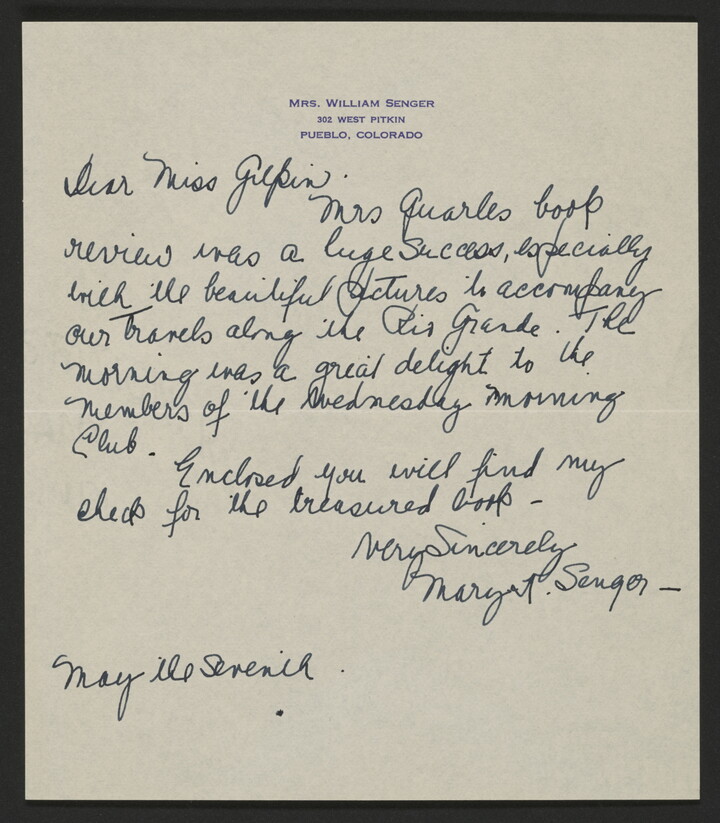 MRS. WILLIAM SENGER
302 WEST PITKIN
PUEBLO, COLORADO
Dear Miss Gilpin.
Mrs Quarles book
review was a huge success, especially
with the beautiful pictures to accompany
our travels along the Rio Grande. The
morning was a great delight to the
members of the Wednesday Morning
Club.
Enclosed you will find my
check for the treasured book -
Very Sincerely
Mary Senger -
May the Seventh.